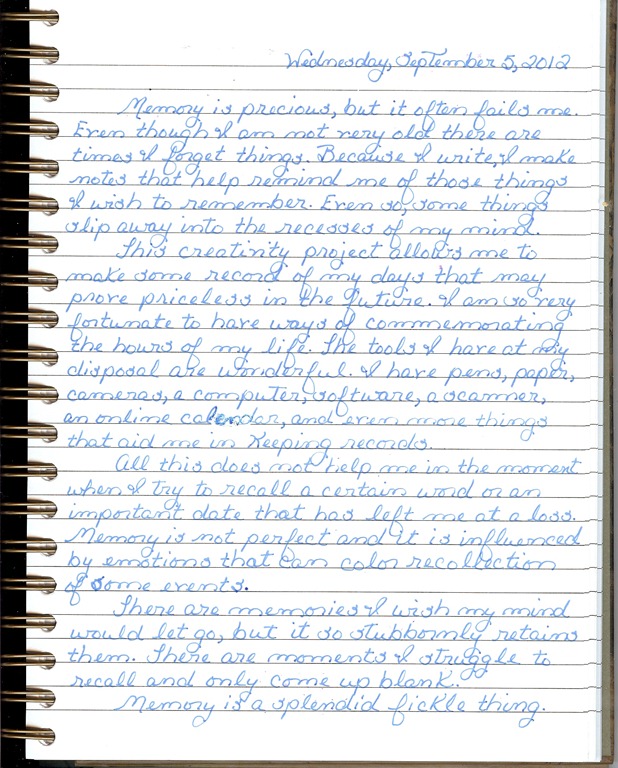 Wednesday, September 5, 2012
Memory is precious, but it often fails me.
Even though I am not very old there are
times I forget things. Because I write, I make
notes that help remind me of those things
I wish to remember. Even so, some things
slip away into the recesses of my mind.
This creativity project allows me to
make some record of my days that may
prove priceless in the future. I am so very
fortunate to have ways of commemorating
the hours of my life. The tools I have at my
disposal are wonderful. I have pens, paper,
cameras, a computer, software, a scanner,
an online calendar, and even more things
that aid me in keeping records.
All this does not help me in the moment
when I try to recall a certain word or an
important date that has left me at a loss.
Memory is not perfect and it is influenced
by emotions that can color recollection
of some events.
There are memories I wish my mind
would let go, but it so stubbornly retains
them. There are moments I struggle to
recall and only come up blank.
Memory is a splendid fickle thing.